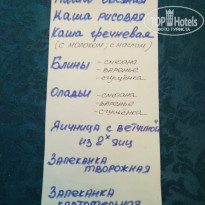 Каша рисовая
Каша гречневая
(с молоком, с маслом)
Блины - сметана
- варенье
- сгущёнка
Оладьи - сметана
- варенье
- сгущёнка
Яичница с ветчиной
из 2х яиц
Запеканка
творожная
Запеканка
картофельная
TopHotels